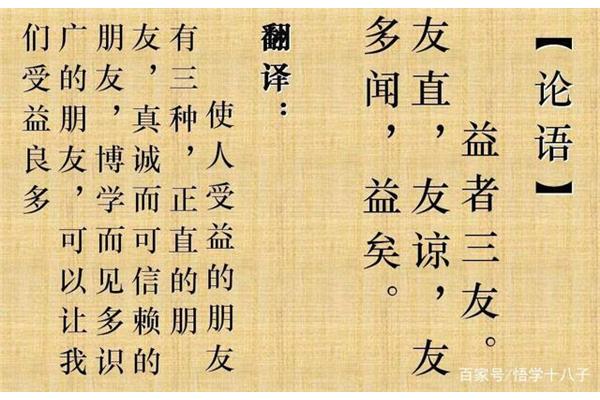 【论语】
益者三友。
友直，友谅，友
多闻，益矣。
翻译：
使人受益的朋友
有三种，正直的朋
友，真诚而可信赖的
朋友，博学而见多识
广的朋友，可以让我
们受益良多
百家号/悟学十八子